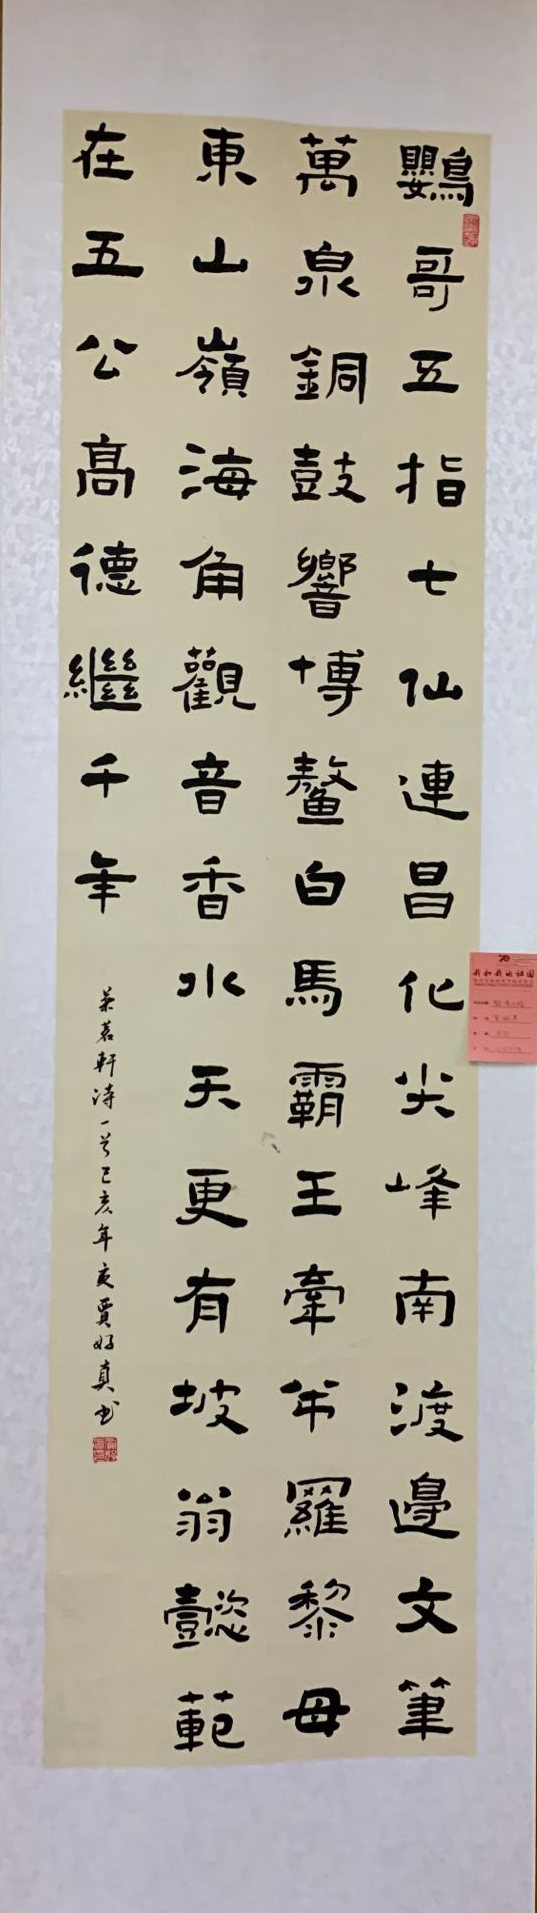 鸚哥五指七仙連昌化尖峰南渡邊文筆
萬泉銅鼓響博鰲白馬霸王牽牟羅黎母
東山嶺海角觀音香水天更有坡翁懿範
在五公高德繼千年
茗軒詩一首己亥年夏賈好真书
我和我的祖国